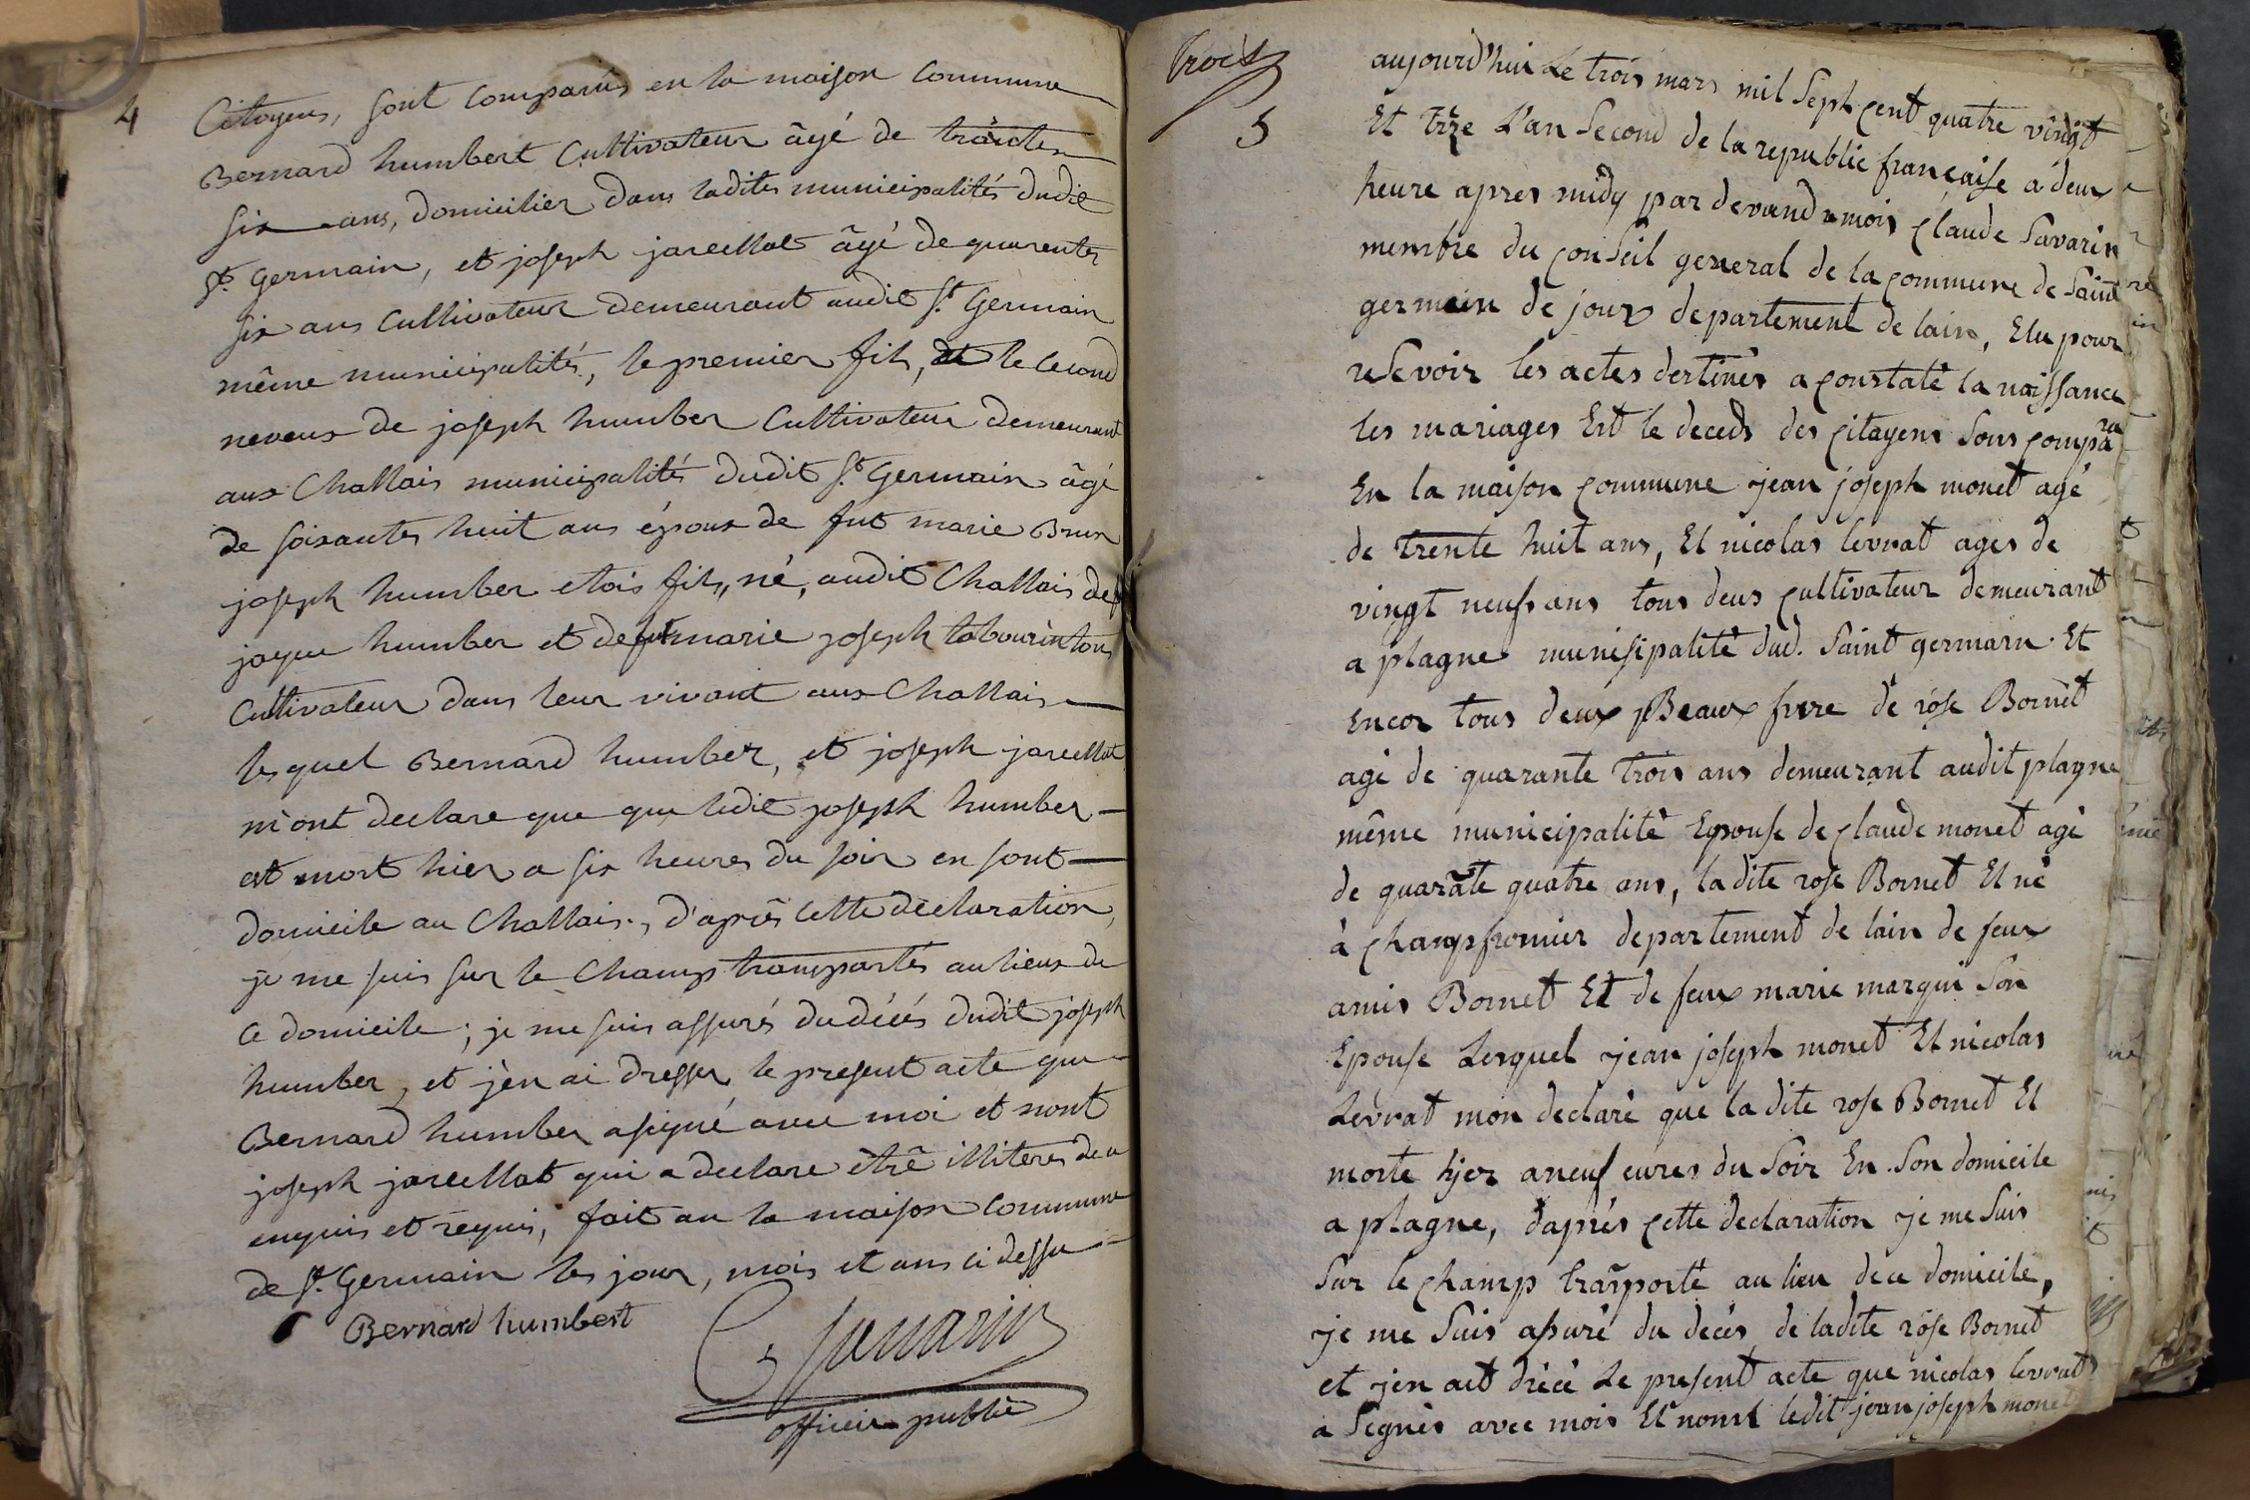 4
Citoyens, sont comparus en la maison Commune
Bernard humbert Cultivateur âgé de trante
six ans, domicilier dans ladites municipalités dudit
St. Germain, et joseph jarcellat âgé de quarentes
six ans Cultivateur demeurant audit St. Germain
même municipalités, le premier fils, et le second
neveux de joseph humber Cultivateur demeurant
aux Challais municipalités dudit St. Germain âgé
de soixantes huit ans époux de fut marie Brun
joseph humber etois fils, né, audit Challais de
joque humber et de fut marie joseph tabourin tous
Cultivateur dans leur vivant aux Challais
les quel Bernard humber, et joseph jarcellat
m'ont declare que que ledit joseph humber
est mort hier a six heures du soir en sont
domicile au Challais, d'après cette dèclaration,
je me suis sur le Champ transportés au lieux de
ce domicile; je me suis assurés du décés dudit joseph
humber, et j'en ai dresser le present acte que
Bernard humber a signé avec moi et nont
joseph jarcellat qui a declare être illiteres de ce
enquis et requis, fait au la maison Commune
de St. Germain les jour, mois et ans ci dessu
Bernard humbert
C, Savarin
officier public
trois
5
aujourd'hui Le trois mars mil Sept cent quatre vingt
Et trze L'an Second de la republic française a deux
heure apres midy par devand mois Claude Savarin
membre du conseil general de la commune de Saint
germain de joux departement de lain, Elu pour
resevoir les actes destinés a constaté la naissance
les mariages Est le deceds des citayens Sous compa
ru
En la maison commune jean joseph monet agé
de trente huit ans, Et nicolas levrat ages de
vingt neufs ans tous deus cultivateur demeurant
a plagne munisipalité dud. Saint germain Et
encor tous deux Beaux frere de rose Bornet
agé de quarante trois ans demeurant audit plagne
même municipalité Epouse de claude monet agé
de quarãte quatre ans, la dite rose Bornet Et né
à champfromier departement de lain de feux
amis Bornet Et de feux marie marqui Son
Epouse Lesquel jean joseph monet Et nicolas
Levrat mon declaré que la dite rose Bornet Et
morte hjer a neuf eures du Soir En Son domicile
a plagne, daprés cette declaration je me Suis
Sur le champ trãsporté au lieu de ce domicile,
je me Suis asuré du decés de ladite rose Bornet
et jen ait drécé Le present acte que nicolas levrat
a Segnés avec mois Et nomt ledit jean joseph monet